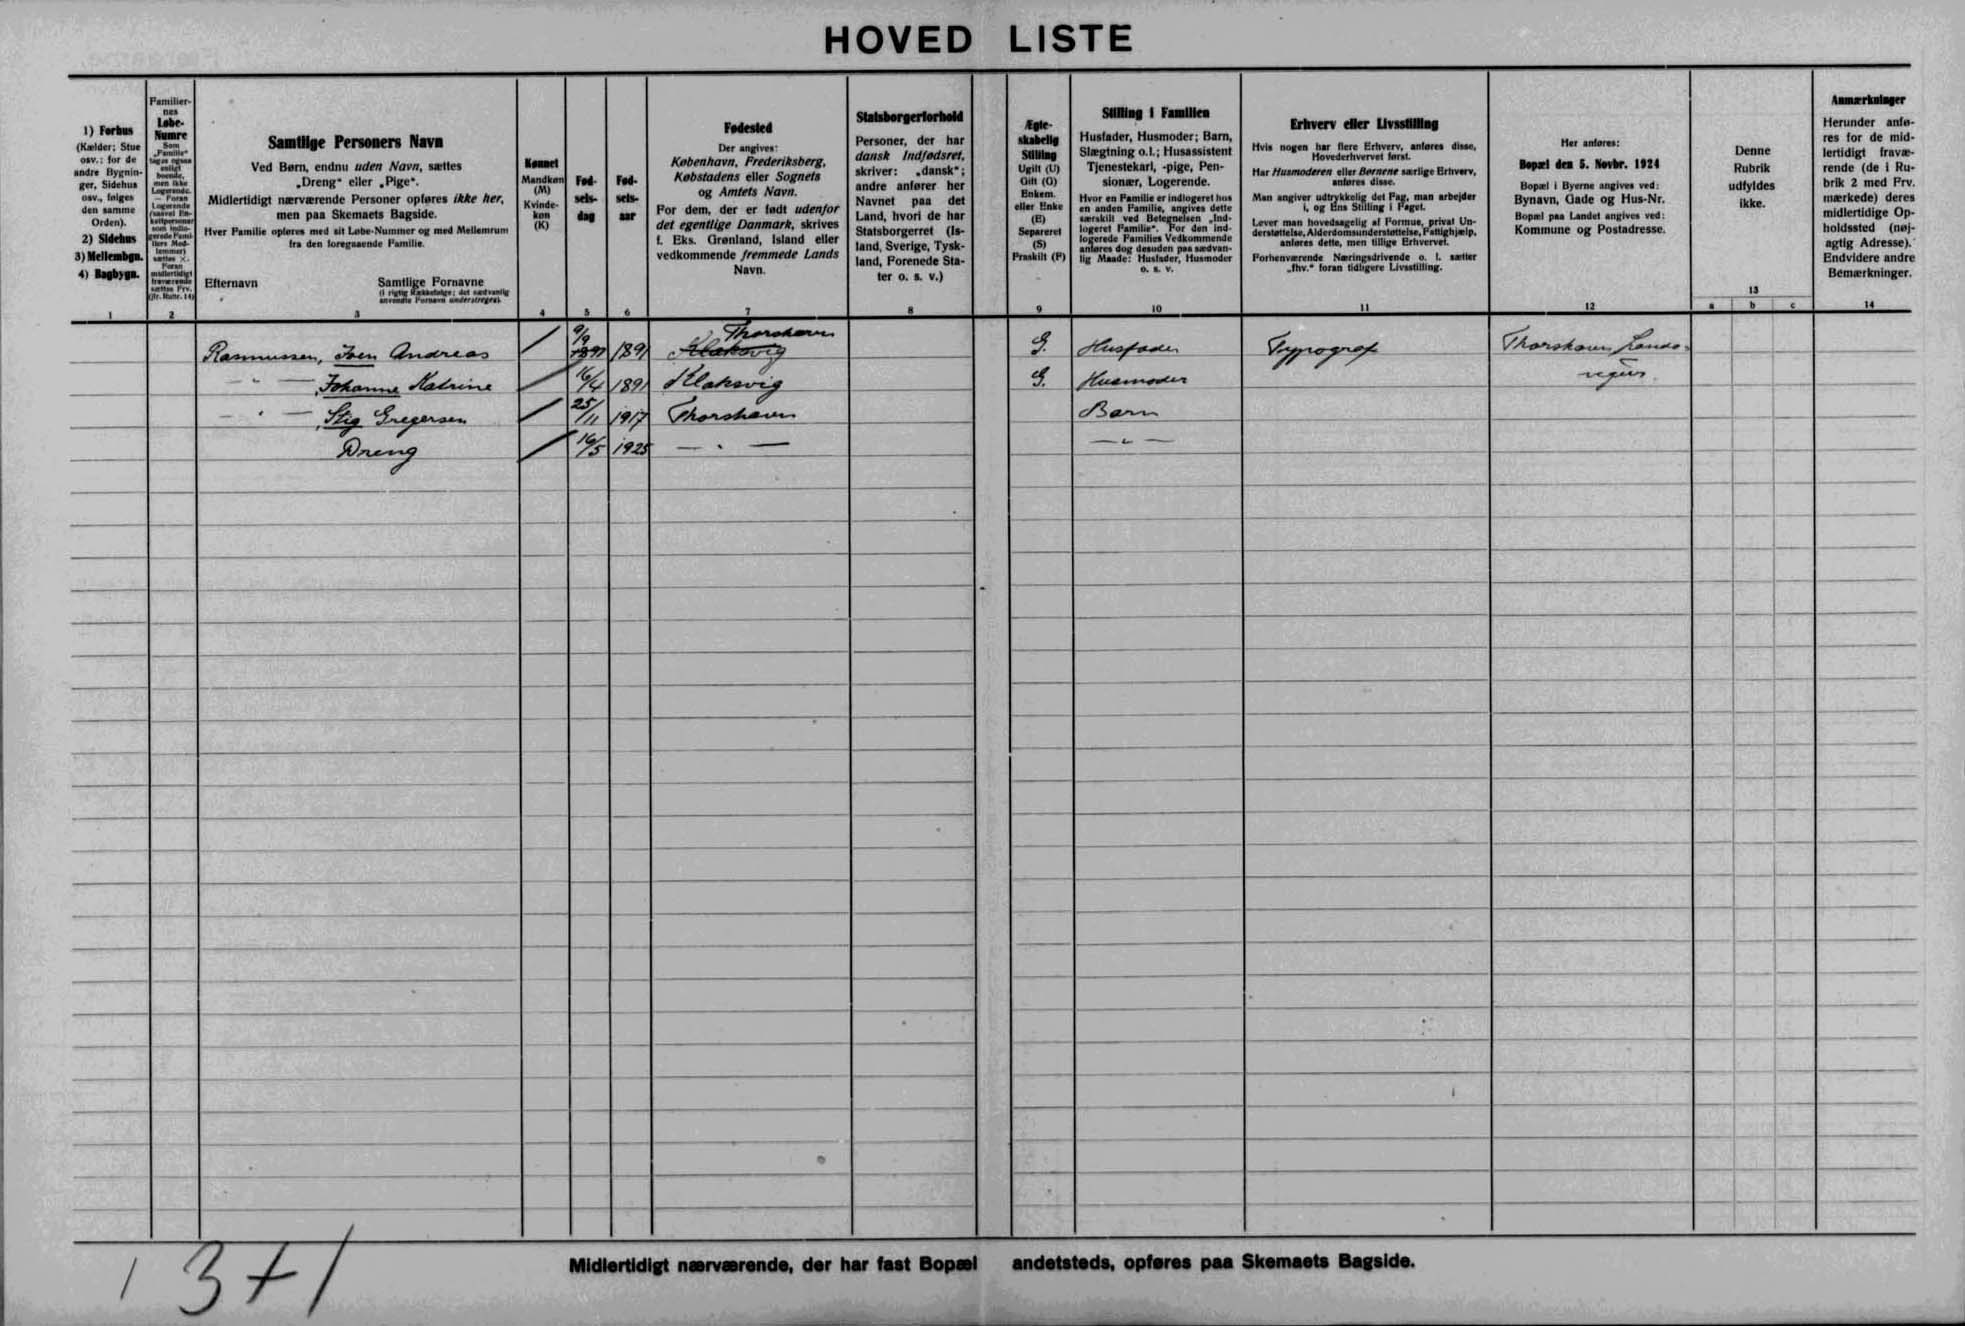 HOVED LISTE
1) Forhus
(Kælder; Stue
osv.: for de
andre Bygnin-
ger, Sidehus
osv., følges
den samme
Orden).
2) Sidehus
3) Mellembgn.
4) Bagbygn.
Familier-
nes
Løbe-
Numre
Som
„Familie“
tages ogsaa
enligt
boende,
men ikke
Logerende.
— Foran
Logerende
(saavel En-
keltpersoner
som indlo-
gerede Fami-
liers Med-
lemmer)
sættes ×.
Foran
midlertidigt
fraværende
sættes Frv.
(jfr. Rubr. 14)
Samtlige Personers Navn
Ved Børn, endnu uden Navn, sættes
„Dreng“ eller „Pige“.
Midlertidigt nærværende Personer opføres ikke her,
men paa Skemaets Bagside.
Hver Familie opføres med sit Løbe-Nummer og med Mellemrum
fra den foregaaende Familie.
Efternavn
Samtlige Fornavne
(i rigtig Rækkefølge; det sædvanlig
anvendte Fornavn understreges).
Kønnet
Mandkøn
(M)
Kvinde-
køn
(K)
Fød-
sels-
dag
Fød-
sels-
aar
Fødested
Der angives:
København, Frederiksberg,
Købstadens eller Sognets
og Amtets Navn.
For dem, der er født udenfor
det egentlige Danmark, skrives
f. Eks. Grønland, Island eller
vedkommende fremmede Lands
Navn.
Statsborgerforhold
Personer, der har
dansk Indfødsret,
skriver: „dansk“;
andre anfører her
Navnet paa det
Land, hvori de har
Statsborgerret (Is-
land, Sverige, Tysk-
land, Forenede Sta-
ter o. s. v.)
Ægte-
skabelig
Stilling
Ugift (U)
Gift (G)
Enkem.
eller Enke
(E)
Separeret
(S)
Fraskilt (F)
Stilling i Familien
Husfader, Husmoder; Barn,
Slægtning o.l.; Husassistent
Tjenestekarl, -pige, Pen-
sionær, Logerende.
Hvor en Familie er indlogeret hos
en anden Familie, angives dette
særskilt ved Betegnelsen „Ind-
logeret Familie“. For den ind-
logerede Families Vedkommende
anføres dog desuden paa sædvan-
lig Maade: Husfader, Husmoder
o. s. v.
Erhverv eller Livsstilling
Hvis nogen har flere Erhverv, anføres disse,
Hovederhvervet først.
Har Husmoderen eller Børnene særlige Erhverv,
anføres disse.
Man angiver udtrykkelig det Fag, man arbejder
i, og Ens Stilling i Faget.
Lever man hovedsagelig af Formue, privat Un-
derstøttelse, Alderdomsunderstøttelse, Fattighjælp,
anføres dette, men tillige Erhvervet.
Forhenværende Næringsdrivende o. l. sætter
„fhv.“ foran tidligere Livsstilling.
Her anføres:
Bopæl den 5. Novbr. 1924
Bopæl i Byerne angives ved:
Bynavn, Gade og Hus-Nr.
Bopæl paa Landet angives ved:
Kommune og Postadresse.
Denne
Rubrik
udfyldes
ikke.
Anmærkninger
Herunder anfø-
res for de mid-
lertidigt fravæ-
rende (de i Ru-
brik 2 med Frv.
mærkede) deres
midlertidige Op-
holdssted (nøj-
agtig Adresse).
Endvidere andre
Bemærkninger.
1 2 3 4 5 6 7 8 9 10 11 12 13 a b c 14
Rasmussen, Joen Andreas / 9/9 1891 1891 Klaksvig Thorshavn G. Husfader Typograf Thorshavn, Lands-
vejen.
— „ — , Johanne Katrine / 16/4 1891 Klaksvig G. Husmoder
— „ — , Stig Gregersen / 25/11 1917 Thorshavn Barn
Dreng / 16/5 1925 — „ — — „ —
Midlertidigt nærværende, der har fast Bopæl andetsteds, opføres paa Skemaets Bagside.
1 3+1